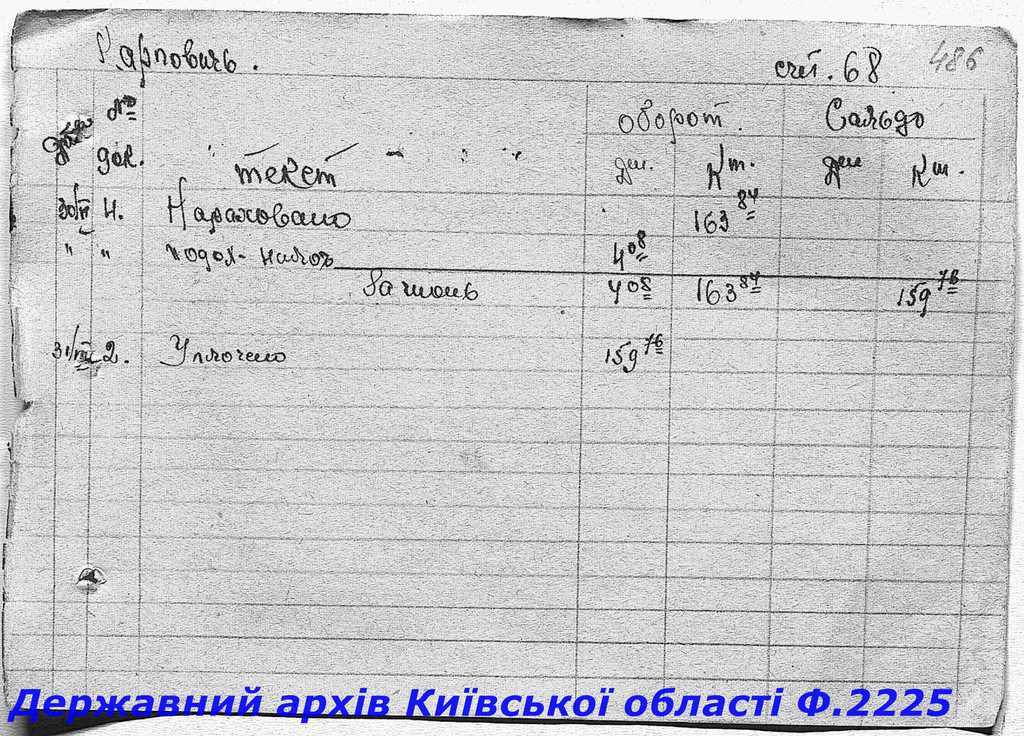 Карповичъ.
счёт. 68
486
дата
№ док.
текст
оборот.
Сальдо
дт. Кт. дт Кт.
30/VI 4. Нараховано 163 84
" " подох. налог 4 08
За июнь 4 08 163 84 159 76
31/VII 2. Уплочено 159 76
Державний архів Київської області Ф.2225